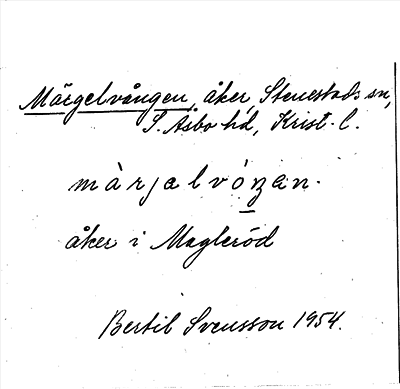 Märgelvången, åker, Stenestads sn,
S. Åsbo hd, Krist. l.
màrjalvóŋan.
åker i Maglaröd
Bertil Svensson 1954.